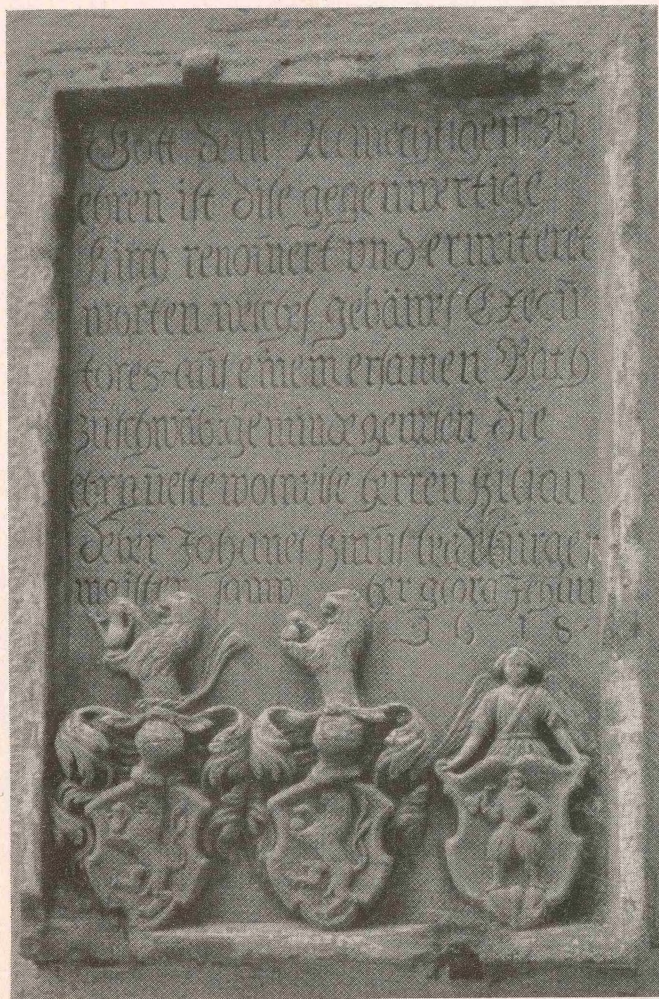 Gott dem Almechtigen zů
ehren ist dise gegenwertige
Kirch renoviert vnd erwiteret
worten welches gebäwes Execů
tores aůs einem ersamen Rath
zů schwäb: gemindt gewesen die
ehrnůeste wolweise herren Kilian
Johanes bede bůrger
maister sampt her georg
1618